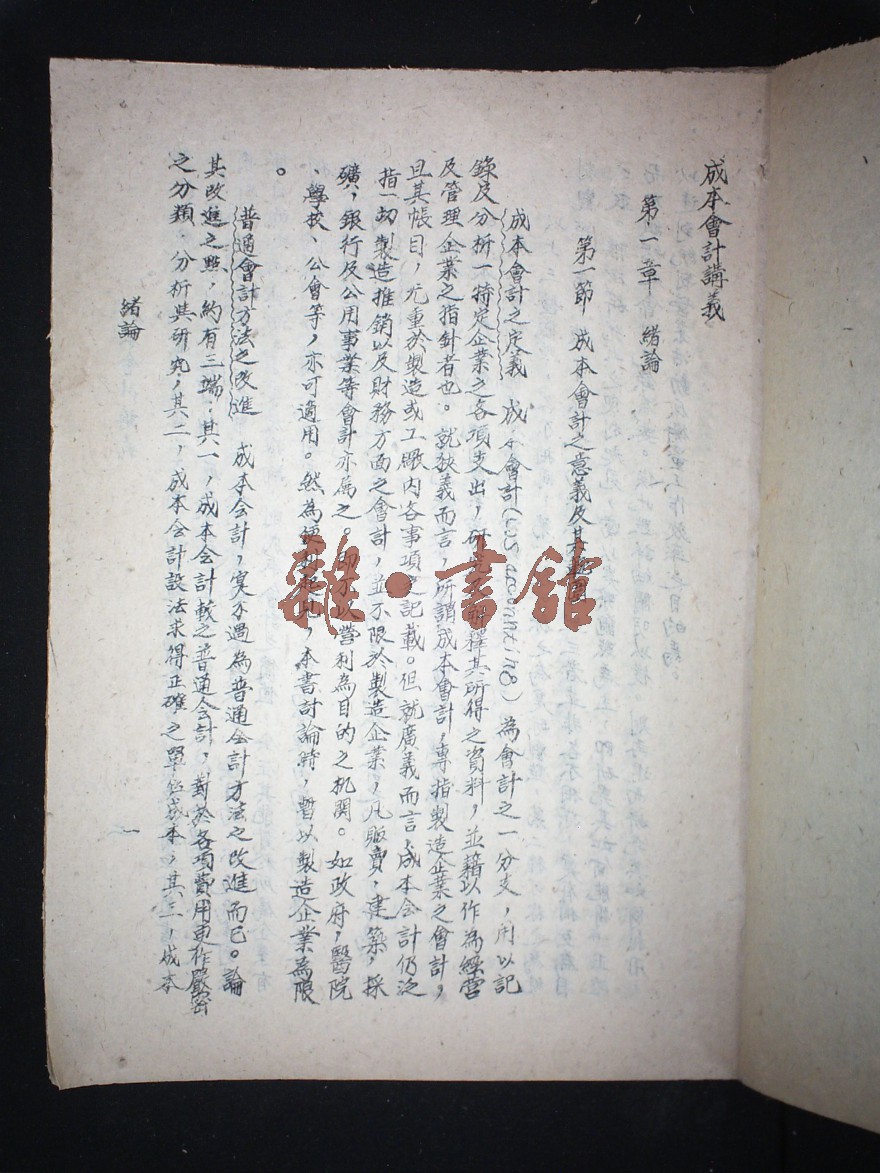 成本會計講義
第一章 緒論
第一節 成本會計之意義及其
成本會計之定義 成本會計(cost accounting)為會計之一分支，用以記
錄及分析一特定企業之各項支出，研究解釋其所得之資料，並藉以作為經營
及管理企業之指針者也。就狹義而言，所謂成本會計，專指製造企業之會計，
且其帳目，尤重於製造或工廠內各事項之記載。但就廣義而言，成本会計仍泛
指一切製造推銷以及財務方面之會計，並不限於製造企業，凡販賣，建築，採
礦，銀行及公用事業等會計亦屬之。即不以營利為目的之机関。如政府，醫院
、學校、公會等，亦可適用。然為便利起見，本書討論時，暫以製造企業為限
。
普通會計方法之改進 成本会計，實不過為普通会計方法之改進而已。論
其改進之點，約有三端．其一，成本会計較之普通会計，對於各項費用更作嚴密
之分類．分析與研究，其二，成本会計設法求得正確之單位成本，其三，成本
緒論
一
雜·書館